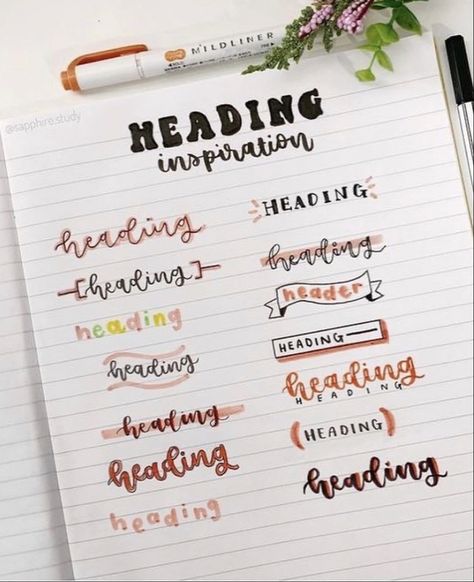 MILDLINER
@sapphire.study
HEADING
inspiration
heading
[heading]
heading
heading
heading
heading
heading
HEADING
heading
header
HEADING
heading
HEADING
(HEADING)
heading